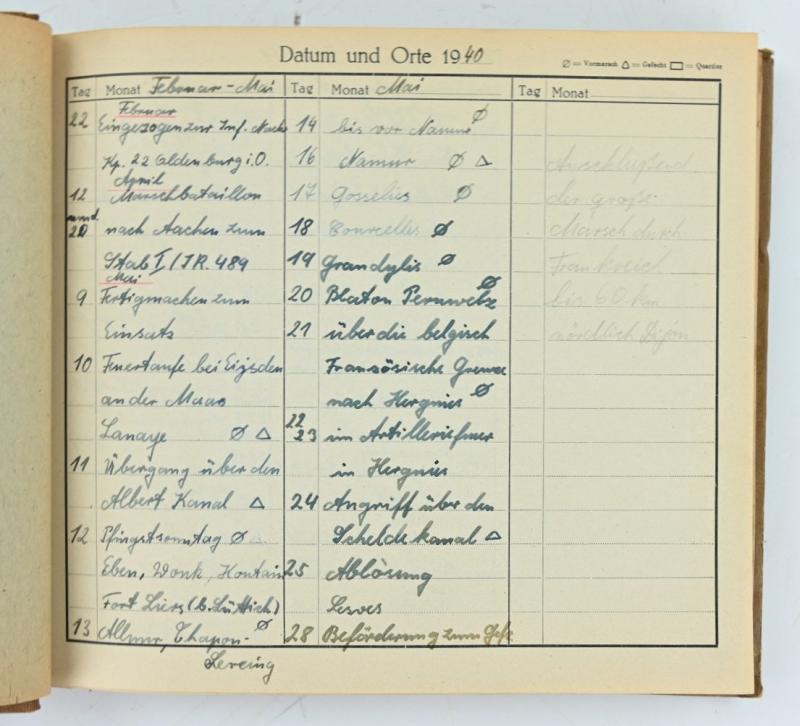 Datum und Orte 1940
∅ = Vormarsch △ = Gefecht ▭ = Quartier
Tag Monat Februar - Mai
Februar
22 Eingezogen zur Inf. Nachr
Kp. 22 Oldenburg i. O.
April
12 Marschbataillon
und
20 nach Aachen zum
Stab I/IR. 489
Mai
9 Fertigmachen zum
Einsatz
10 Feuertaufe bei Eijsden
an der Maas
Lanaye ∅ △
11 Übergang über den
Albert Kanal △
12 Pfingstsonntag ∅ △
Eben, Wonk, Hontain
Fort Liers (b. Lüttich)
13 Allmur, Chapon- ∅
Sereing
Tag Monat Mai
14 bis vor Namur ∅
16 Namur ∅ △
17 Gosselies ∅
18 Courcelles ∅
19 Grandglis ∅
20 Blaton Peruwelz ∅
21 über die belgisch
Französische Grenze
nach Hergnies ∅
22
23 im Artilleriefeuer
in Hergnies
24 Angriff über den
Scheldekanal △
25 Ablösung
Lesves
28 Beförderung zum Gefr.
Tag Monat
Anschließend
der große
Marsch durch
Frankreich
bis 60 km
nördlich Dijon